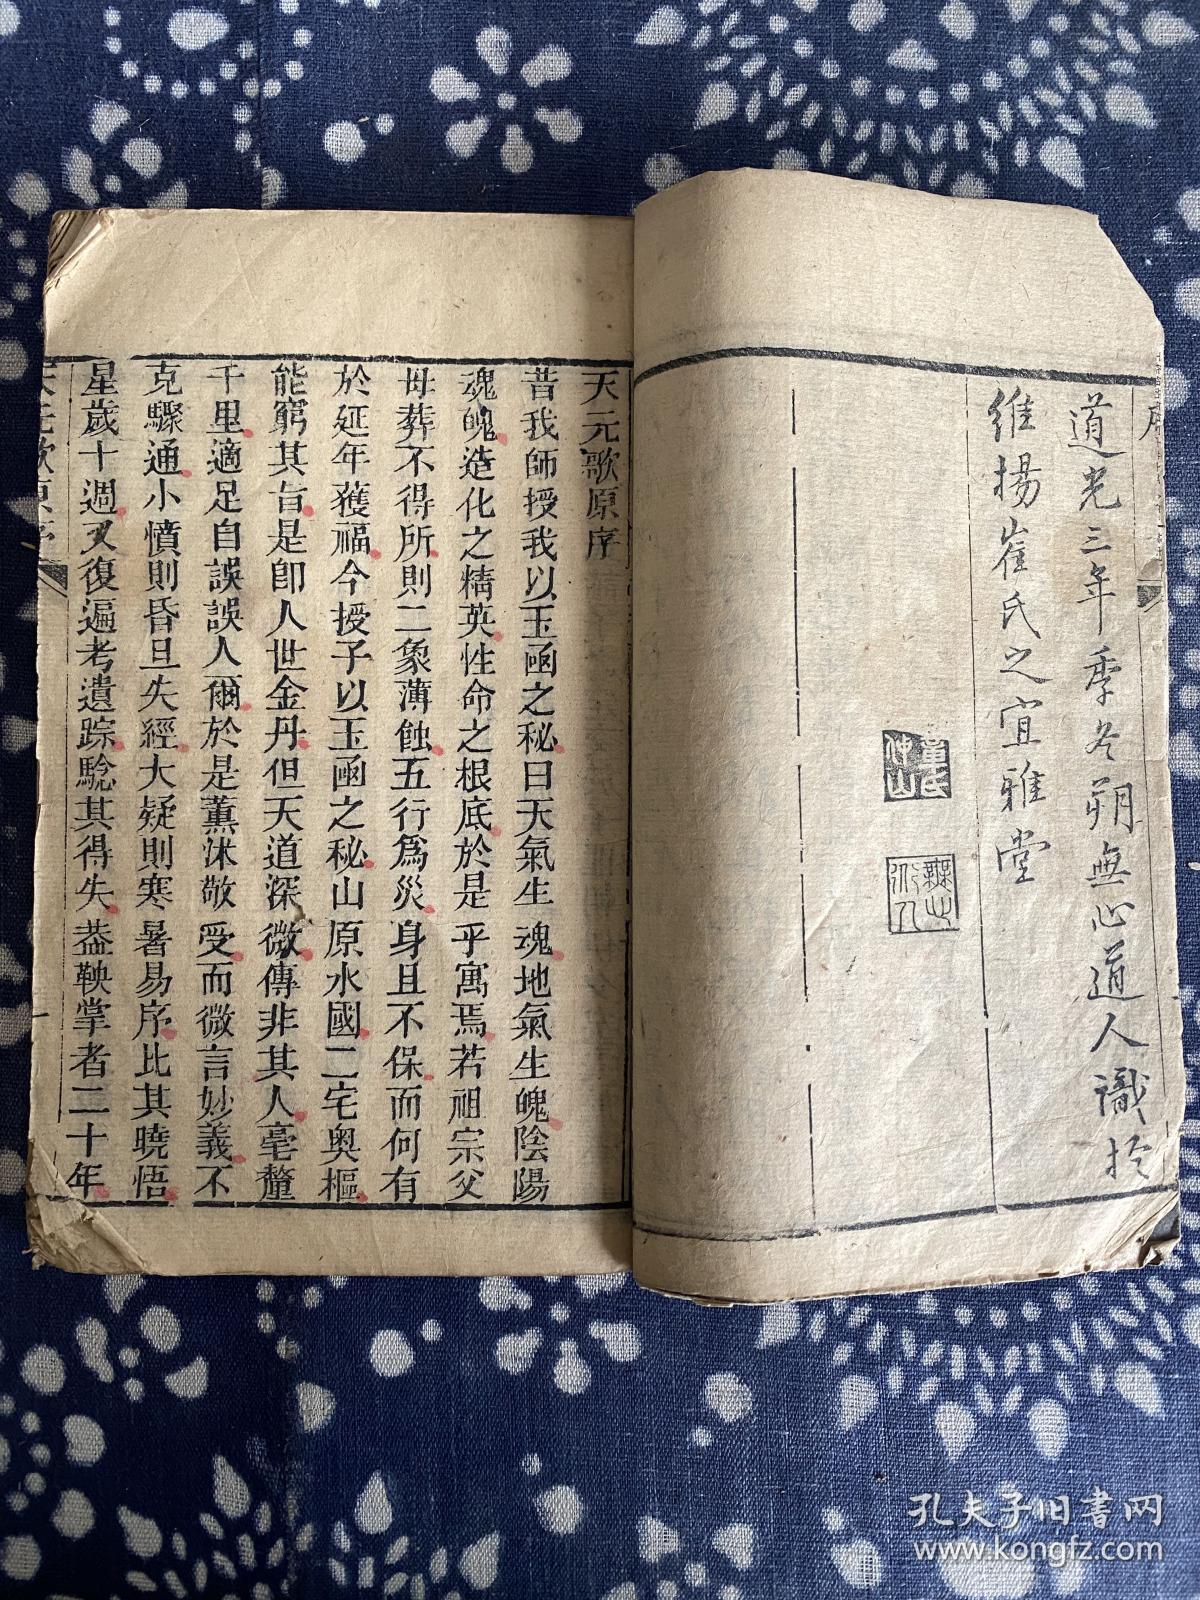 序
道光三年季冬朔無心道人識於
維揚崔氏之宜雅堂
天元歌原序
昔我師授我以玉函之秘曰天氣生魂地氣生魄陰陽
魂魄造化之精英性命之根底於是乎寓焉若祖宗父
母葬不得所則二象薄蝕五行爲災身且不保而何有
於延年獲福今授子以玉函之秘山原水國二宅奥樞
能窮其旨是卽人世金丹但天道深微傳非其人毫釐
千里適足自誤誤人爾於是薰沐敬受而微言妙義不
克驟通小憤則昏旦失經大疑則寒暑易序比其曉悟
星歲十週又復遍考遺踪騐其得失葢鞅掌者二十年
天元歌原序
一
孔夫子旧书网
www.kongfz.com